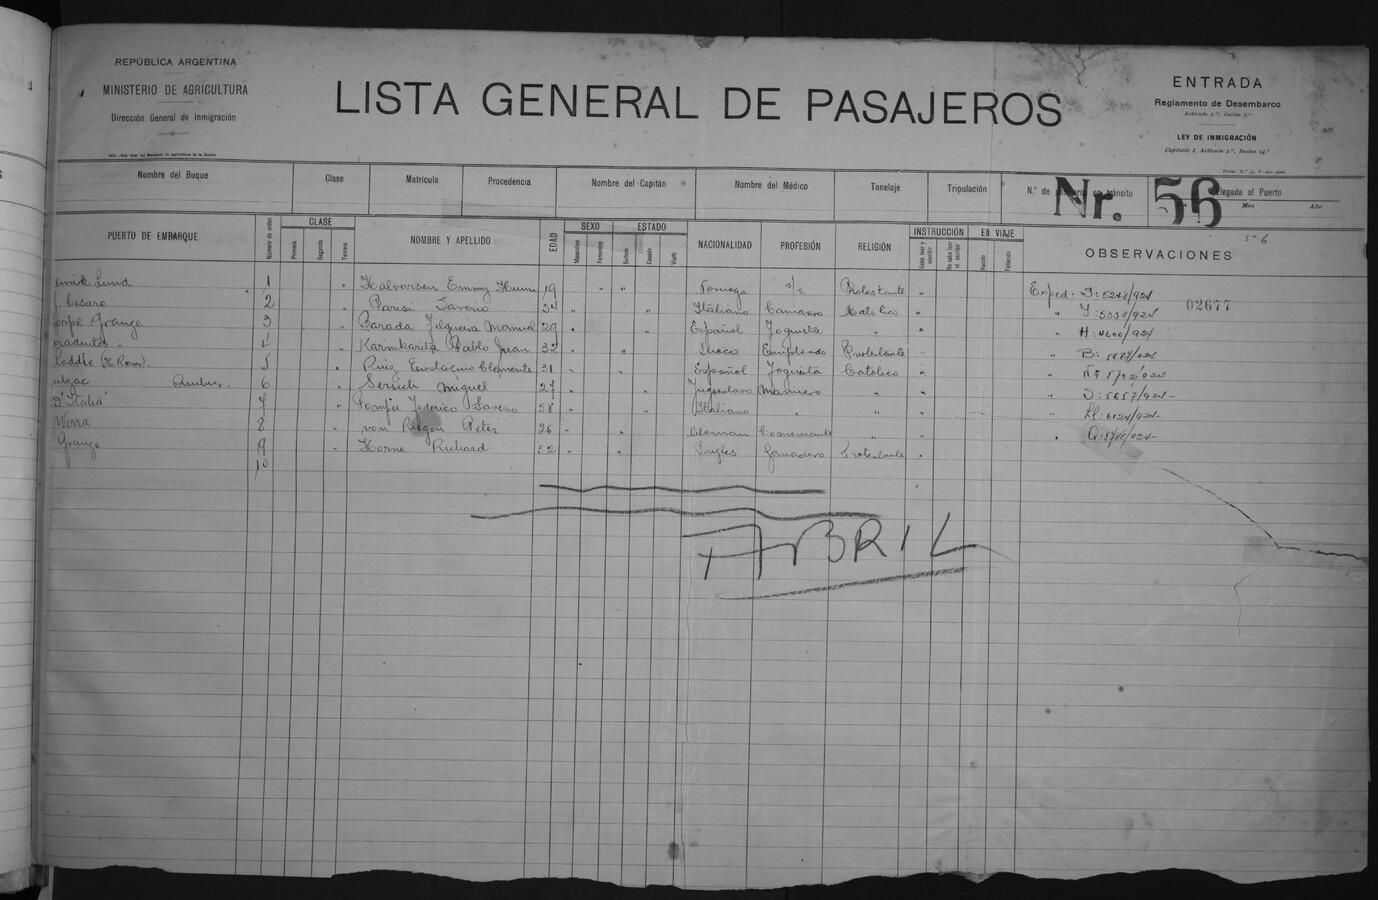 REPÚBLICA ARGENTINA
MINISTERIO DE AGRICULTURA
Dirección General de Inmigración
LISTA GENERAL DE PASAJEROS
ENTRADA
Reglamento de Desembarco
Artículo 5.º, Inciso 3.º
LEY DE INMIGRACIÓN
Capítulo I, Artículo 3.º, Inciso 14.º
Nombre del Buque Clase Matrícula Procedencia Nombre del Capitán Nombre del Médico Tonelaje Tripulación N.º de pasajeros en tránsito Llegada al Puerto
Mes Año
Nr. 56
PUERTO DE EMBARQUE Número de orden CLASE NOMBRE Y APELLIDO EDAD SEXO ESTADO NACIONALIDAD PROFESIÓN RELIGIÓN INSTRUCCIÓN EN VIAJE OBSERVACIONES
Primera Segunda Tercera Masculino Femenino Soltero Casado Viudo Sabe leer y escribir No sabe leer ni escribir Nacido Fallecido
5-6
Lund 1 " Halvorsen Emmy 19 " " Noruega s/p Protestante " Exped: 5248/924
Cesare 2 " Parisi Saverio 34 " " Italiano Camarero Catolico " " 5338/924
02677
Grange 3 " Parada Filgueira Manuel 29 " " Español Foguista " " " H: 4600/924
4 " Pablo Juan 32 " " Sueco Empleado Protestante " " B:
5 " Ruiz Eustaquio Clemente 31 " " Español Foguista Catolico " "
6 " Sersich Miguel 27 " " Yugoeslavo Marinero " " " 5657/924-
D'Italia" 7 " Federico Saverio 58 " " Italiano " " " " 6124/924-
Werra 8 " von Peter 26 " " Aleman Comerciante " " "
Grange 9 " Horne Richard 52 " " Ingles Ganadero Protestante "
10
ABRIL